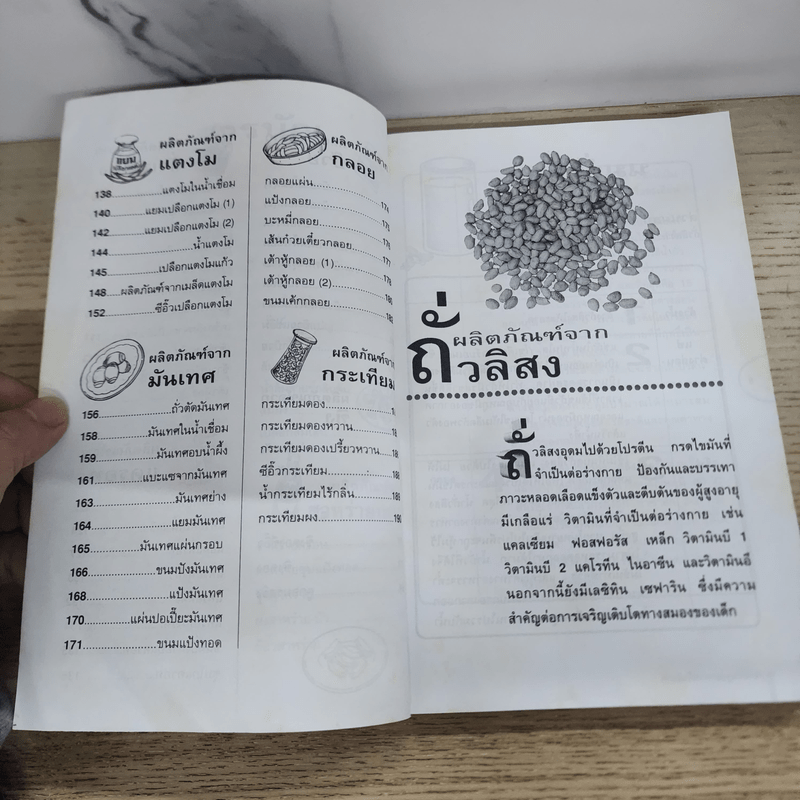 ผลิตภัณฑ์จาก
แตงโม
138..............แตงโมในน้ำเชื่อม
140.........แยมเปลือกแตงโม (1)
142.........แยมเปลือกแตงโม (2)
144.........................น้ำแตงโม
145................เปลือกแตงโมแก้ว
148....ผลิตภัณฑ์จากเมล็ดแตงโม
152............ซีอิ๊วเปลือกแตงโม
ผลิตภัณฑ์จาก
มันเทศ
156....................ถั่วตัดมันเทศ
158..............มันเทศในน้ำเชื่อม
159................มันเทศอบน้ำผึ้ง
161.............แบะแซจากมันเทศ
163........................มันเทศย่าง
164........................แยมมันเทศ
165..............มันเทศแผ่นกรอบ
166..................ขนมปังมันเทศ
168.......................แป้งมันเทศ
170...........แผ่นปอเปี๊ยะมันเทศ
171....................ขนมแป้งทอด
ผลิตภัณฑ์จาก
กลอย
กลอยแผ่น
แป้งกลอย................174
บะหมี่กลอย................175
เส้นก๋วยเตี๋ยวกลอย........176
เต้าหู้กลอย (1)............177
เต้าหู้กลอย (2)............179
ขนมเค้กกลอย............180
ผลิตภัณฑ์จาก
กระเทียม
กระเทียมดอง
กระเทียมดองหวาน
กระเทียมดองเปรี้ยวหวาน
ซีอิ๊วกระเทียม
น้ำกระเทียมไร้กลิ่น
กระเทียมผง
ผลิตภัณฑ์จาก
ถั่วลิสง
ถั่วลิสงอุดมไปด้วยโปรตีน กรดไขมันที่
จำเป็นต่อร่างกาย ป้องกันและบรรเทา
ภาวะหลอดเลือดแข็งตัวและตีบตันของผู้สูงอายุ
มีเกลือแร่ วิตามินที่จำเป็นต่อร่างกาย เช่น
แคลเซียม ฟอสฟอรัส เหล็ก วิตามินบี 1
วิตามินบี 2 แคโรทีน ไนอาซีน และวิตามินอี
นอกจากนี้ยังมีเลซิทิน เซฟาริน ซึ่งมีความ
สำคัญต่อการเจริญเติบโตทางสมองของเด็ก